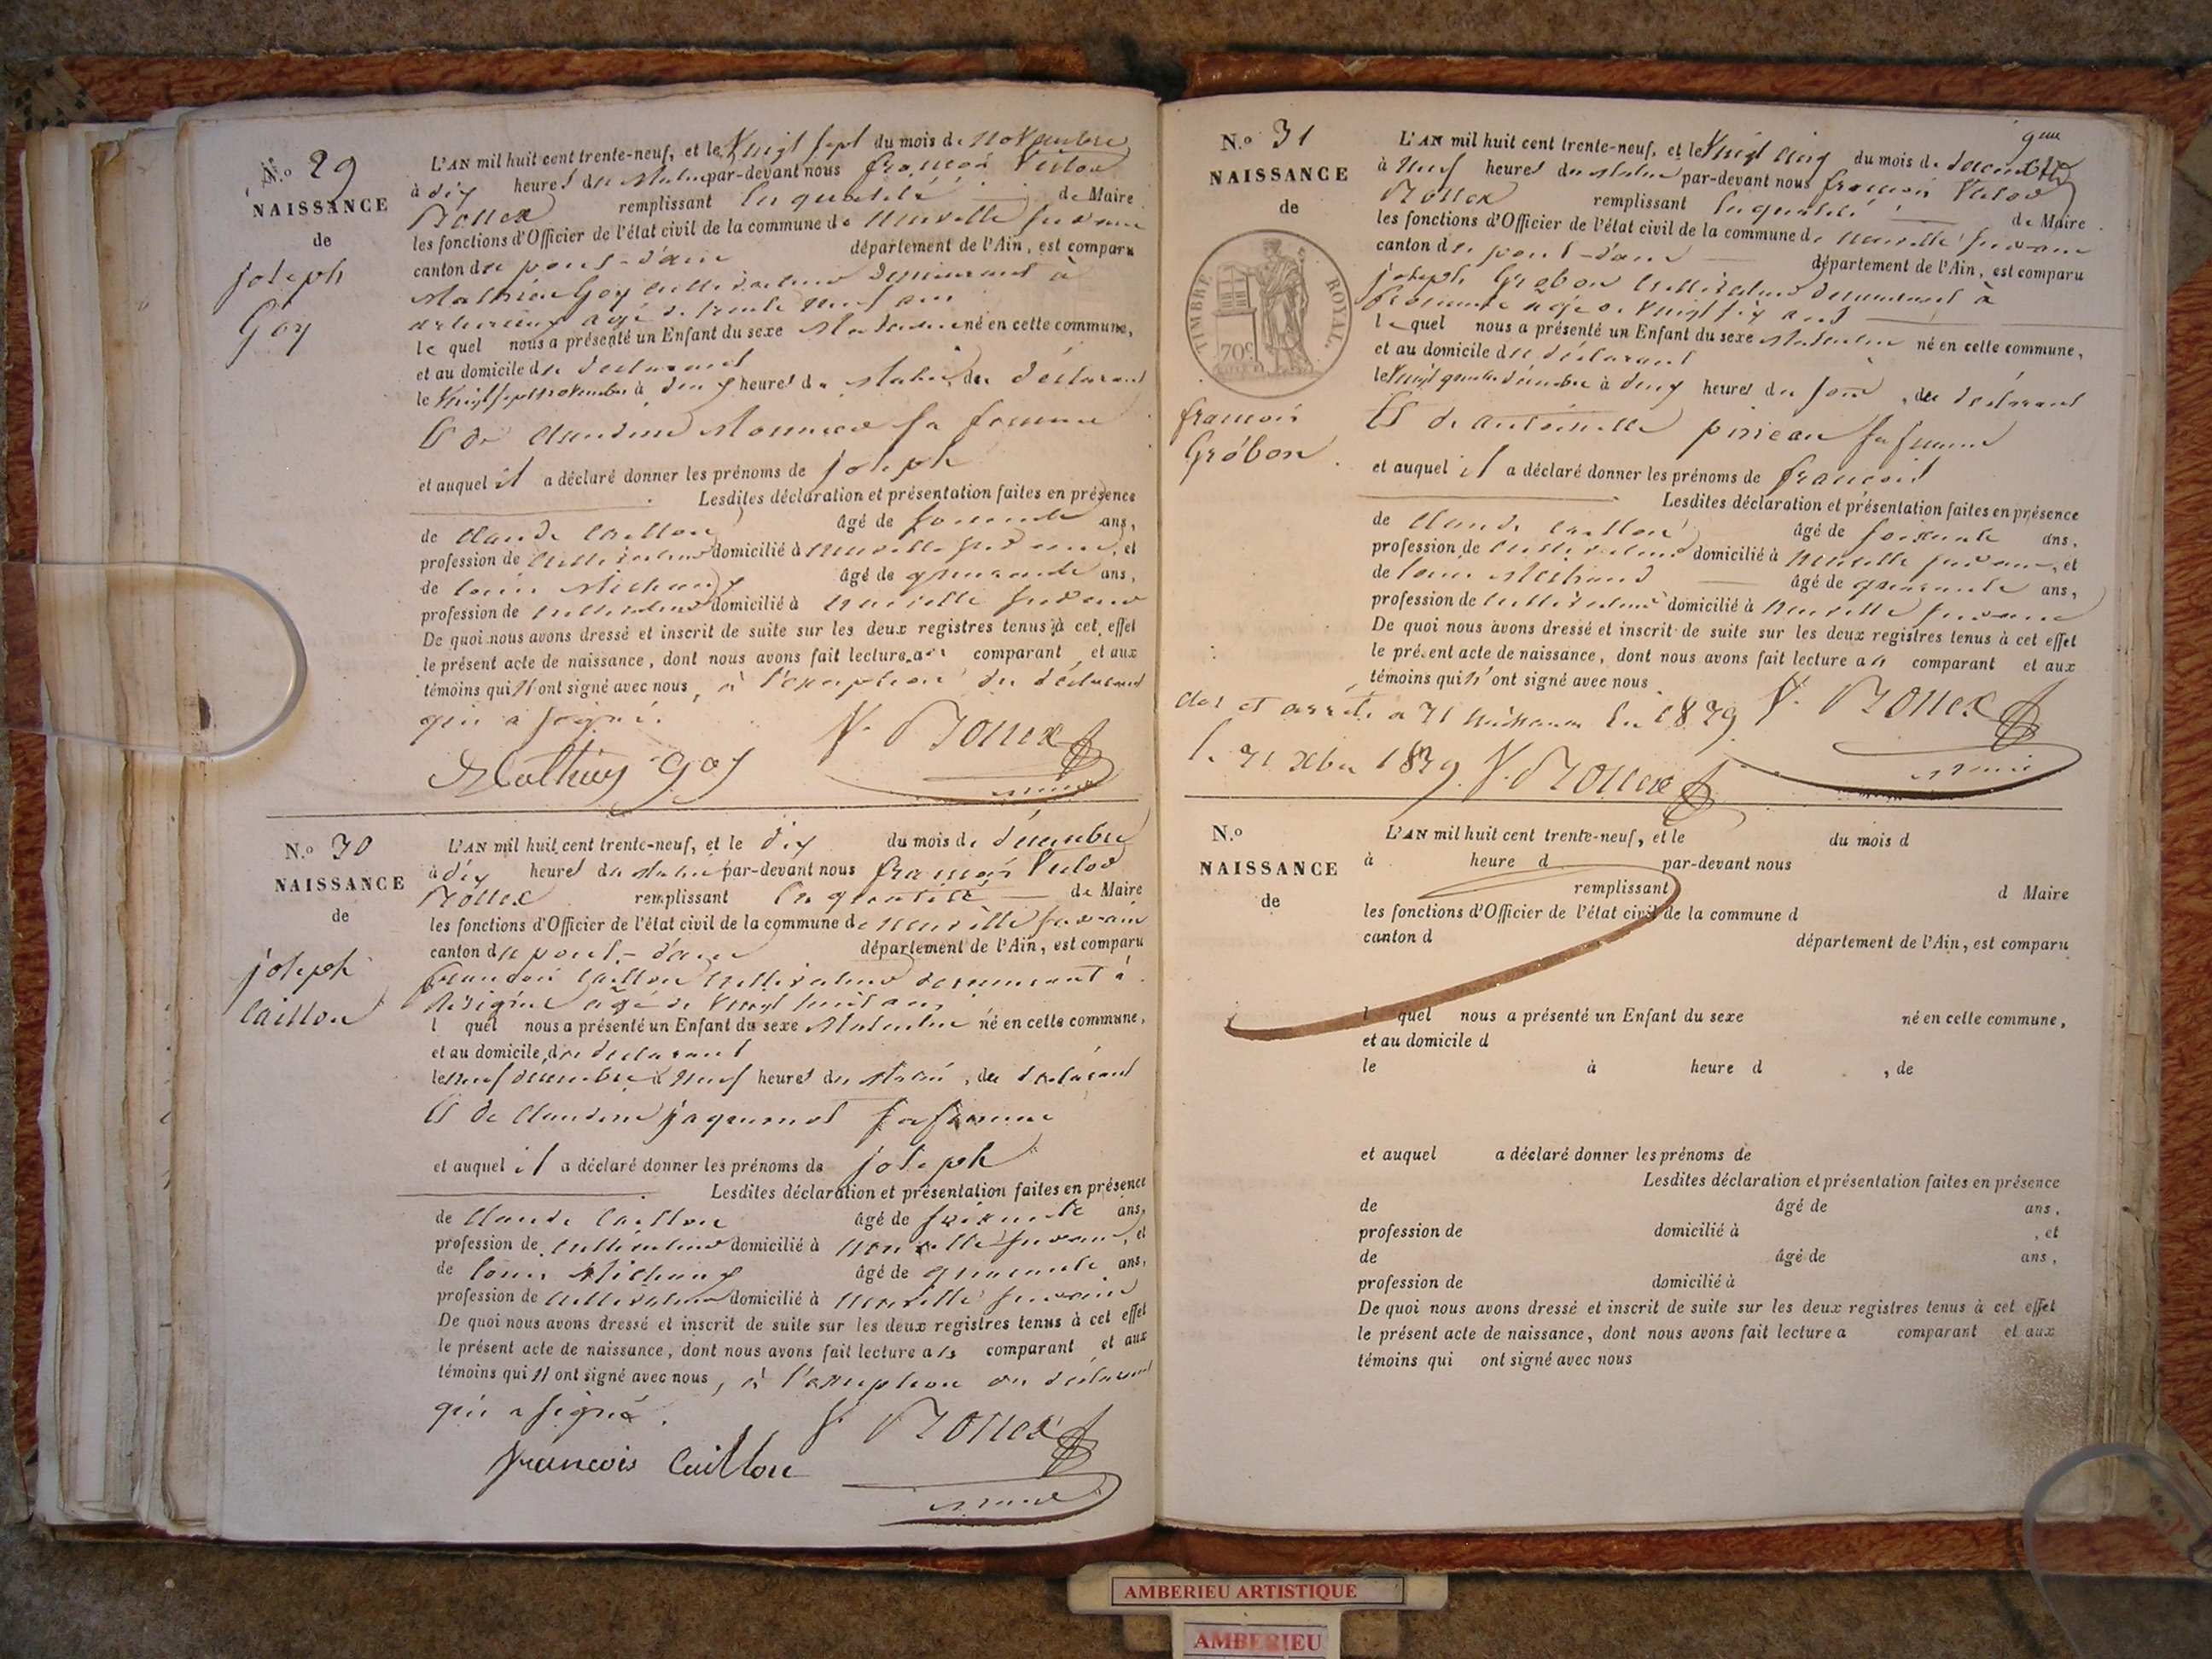 N.º 29
NAISSANCE
de
joseph
Goy
L'AN mil huit cent trente-neuf, et le Vingt sept du mois de novembre
à dix heures du matin par-devant nous françois Victor
Rollex remplissant en qualité de Maire
les fonctions d'Officier de l'état civil de la commune de neuville sur ain
canton de pont-d'ain département de l'Ain, est comparu
Mathieu Goy cultivateur demeurant à
agé de trente neuf ans
le quel nous a présenté un Enfant du sexe Masculin né en cette commune,
et au domicile du déclarant
le Vingt sept novembre à deux heures du matin, du déclarant
Et de Claudine sa femme
et auquel il a déclaré donner les prénoms de joseph
Lesdites déclaration et présentation faites en présence
de Claude Caillon âgé de soixante ans,
profession de cultivateur domicilié à neuville sur ain, et
de louis Michaux âgé de quarante ans,
profession de cultivateur domicilié à neuville sur ain
De quoi nous avons dressé et inscrit de suite sur les deux registres tenus à cet effet
le présent acte de naissance, dont nous avons fait lecture au comparant et aux
témoins qui n'ont signé avec nous, à l'exception du déclarant
qui a signé.
Mathieu goy V. Rollex
maire
N.º 30
NAISSANCE
de
joseph
Caillon
L'AN mil huit cent trente-neuf, et le dix du mois de décembre
à dix heures du matin par-devant nous françois Victor
Rollex remplissant en qualité de Maire
les fonctions d'Officier de l'état civil de la commune de neuville sur ain
canton de pont-d'ain département de l'Ain, est comparu
françois Caillon cultivateur demeurant à
agé de Vingt huit ans
l quel nous a présenté un Enfant du sexe Masculin né en cette commune,
et au domicile du déclarant
le neuf décembre à neuf heures du matin, du déclarant
Et de Claudine jaquemet sa femme
et auquel il a déclaré donner les prénoms de joseph
Lesdites déclaration et présentation faites en présence
de Claude Caillon âgé de soixante ans,
profession de cultivateur domicilié à neuville sur ain, et
de louis Michaux âgé de quarante ans,
profession de cultivateur domicilié à neuville sur ain
De quoi nous avons dressé et inscrit de suite sur les deux registres tenus à cet effet
le présent acte de naissance, dont nous avons fait lecture au comparant et aux
témoins qui n'ont signé avec nous, à l'exception du déclarant
qui a signé.
V. Rollex
françois Caillon
maire
N.º 31
NAISSANCE
de
TIMBRE ROYAL.
70c
françois
Gröbon
L'AN mil huit cent trente-neuf, et le Vingt cinq du mois de décembre
à neuf heures du matin par-devant nous françois Victor
Rollex remplissant en qualité de Maire
les fonctions d'Officier de l'état civil de la commune de neuville sur ain
canton de pont-d'ain département de l'Ain, est comparu
joseph Gröbon cultivateur demeurant à
agé de Vingt six ans
le quel nous a présenté un Enfant du sexe Masculin né en cette commune,
et au domicile du déclarant
le Vingt quatre décembre à deux heures du soir, du déclarant
Et de antoinette sa femme
et auquel il a déclaré donner les prénoms de françois
Lesdites déclaration et présentation faites en présence
de Claude Caillon âgé de soixante ans,
profession de cultivateur domicilié à neuville sur ain, et
de louis Michaud âgé de quarante ans,
profession de cultivateur domicilié à neuville sur ain
De quoi nous avons dressé et inscrit de suite sur les deux registres tenus à cet effet
le présent acte de naissance, dont nous avons fait lecture au comparant et aux
témoins qui n'ont signé avec nous
clos et arrêté a 31 naissances En 1839 V. Rollex
le 31 xbre 1839. V. Rollex
maire
N.º
NAISSANCE
de
L'AN mil huit cent trente-neuf, et le du mois d
à heure d par-devant nous
remplissant d Maire
les fonctions d'Officier de l'état civil de la commune d
canton d département de l'Ain, est comparu
l quel nous a présenté un Enfant du sexe né en cette commune,
et au domicile d
le à heure d , de
et auquel a déclaré donner les prénoms de
Lesdites déclaration et présentation faites en présence
de âgé de ans,
profession de domicilié à , et
de âgé de ans,
profession de domicilié à
De quoi nous avons dressé et inscrit de suite sur les deux registres tenus à cet effet
le présent acte de naissance, dont nous avons fait lecture a comparant et aux
témoins qui ont signé avec nous
AMBERIEU ARTISTIQUE
AMBERIEU